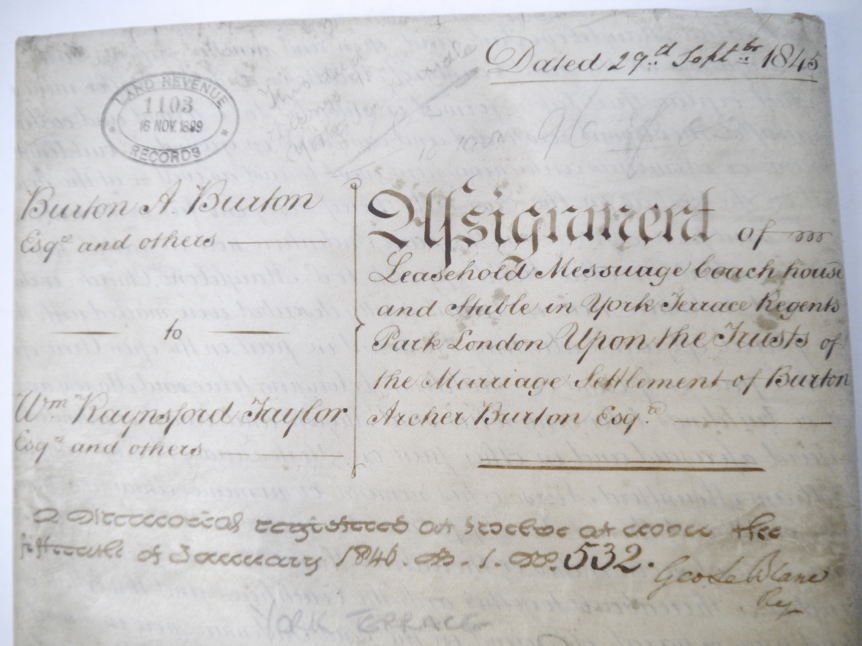 Dated 29th Septbr 1845
LAND REVENUE
1103
16 NOV. 1899
RECORDS
Burton A Burton
Esqre and others
to
Wm Raynsford Taylor
Esqre and others
Assignment of
Leasehold Messuage Coach house
and Stable in York Terrace Regents
Park London Upon the Trusts of
the Marriage Settlement of Burton
Archer Burton Esqre
A Memorial registered at twelve at noon the
fifteenth of January 1846. B. 1. No. 532.
Geo Le Blanc
Reg
YORK TERRACE